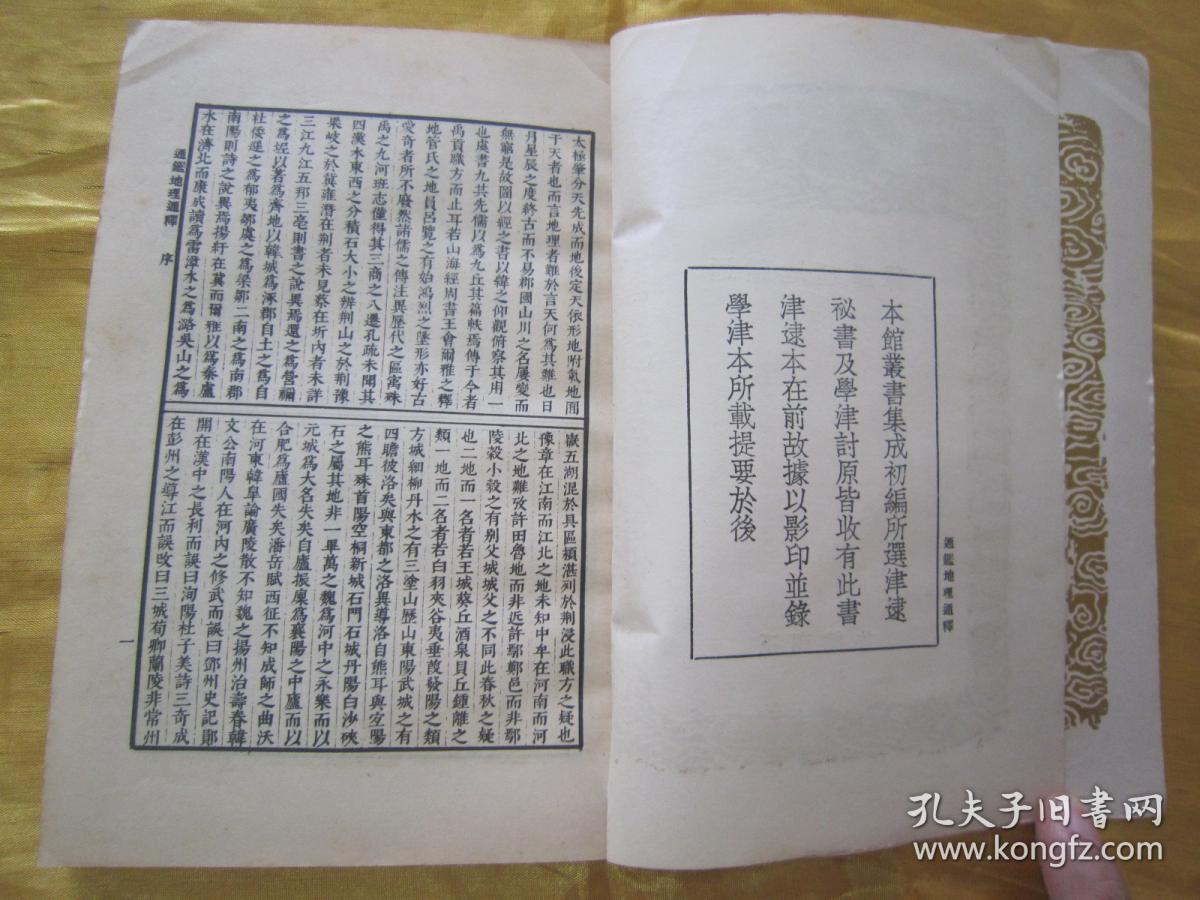 本館叢書集成初編所選津逮
祕書及學津討原皆收有此書
津逮本在前故據以影印並錄
學津本所載提要於後
通鑑地理通釋
太極肇分天先成而地後定天依形地附氣地囿
于天者也而言地理者難於言天何為其難也日
月星辰之度終古而不易郡國山川之名屢變而
無窮是故圖以經之書以緯之仰觀俯察其用一
也虞書九共先儒以為九丘其篇軼焉傳于今者
禹貢職方而止耳若山海經周書王會爾雅之釋
地管氏之地員呂覽之有始鴻烈之墬形亦好古
愛奇者所不廢然諸儒之傳注異歷代之區寓殊
禹之九河班志僅得其三商之八遷孔疏未聞其
四漢水東西之分積石大小之辨荆山之於荆豫
梁岐之於冀雍潛在荆者未見蔡在圻内者未詳
三江九江五邦三亳則書之說異焉還之為營禰
之為坭以著為齊地以韓城為涿郡自土之為自
杜倭遲之為郁夷鄒處之為梁鄒二南之為南郡
南陽則詩之說異焉揚紆在冀而爾雅以為秦盧
水在濟北而康成讀為雷漳水之為潞吳山之為
通鑑地理通釋 序
嶽五湖混於具區潁湛列於荆浸此職方之疑也
豫章在江南而江北之地未知中牟在河南而河
北之地難攷許田魯地而非近許鄢鄭邑而非鄢
陵穀小穀之有别父城城父之不同此春秋之疑
也二地而一名者若王城葵丘酒泉貝丘鍾離之
類一地而二名者若白羽夾谷夷垂葭發陽之類
方城細柳丹水之有三塗山歷山東陽武城之有
四瞻彼洛矣與東都之洛異導洛自熊耳與宜陽
之熊耳殊首陽空桐新城石門石城丹陽白沙硤
石之屬其地非一畢萬之魏為河中之永樂而以
元城為大名失矣自廬振廩為襄陽之中廬而以
合肥為廬國失矣潘岳賦西征不知成師之曲沃
在河東韓臯論廣陵散不知魏之揚州治壽春韓
文公南陽人在河内之修武而誤曰鄧州史記鄖
關在漢中之長利而誤曰洵陽杜子美詩三奇戍
在彭州之導江而誤改曰三城荀卿蘭陵非常州
一
孔夫子旧书网
www.kongfz.com